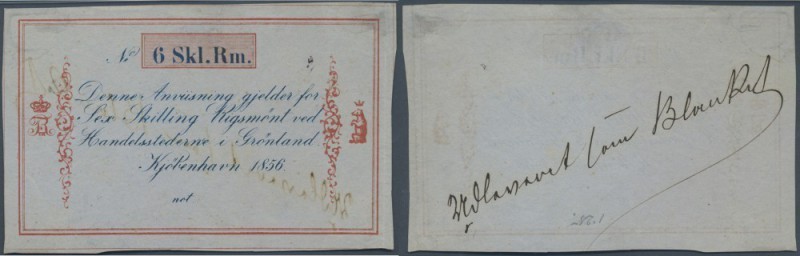 No
6 Skl. Rm.
Denne Anviisning gjelder for
Sex Skilling Rigsmönt ved
Handelsstederne i Grönland
Kjöbenhavn 1856.
not
Udleveret som Blanket